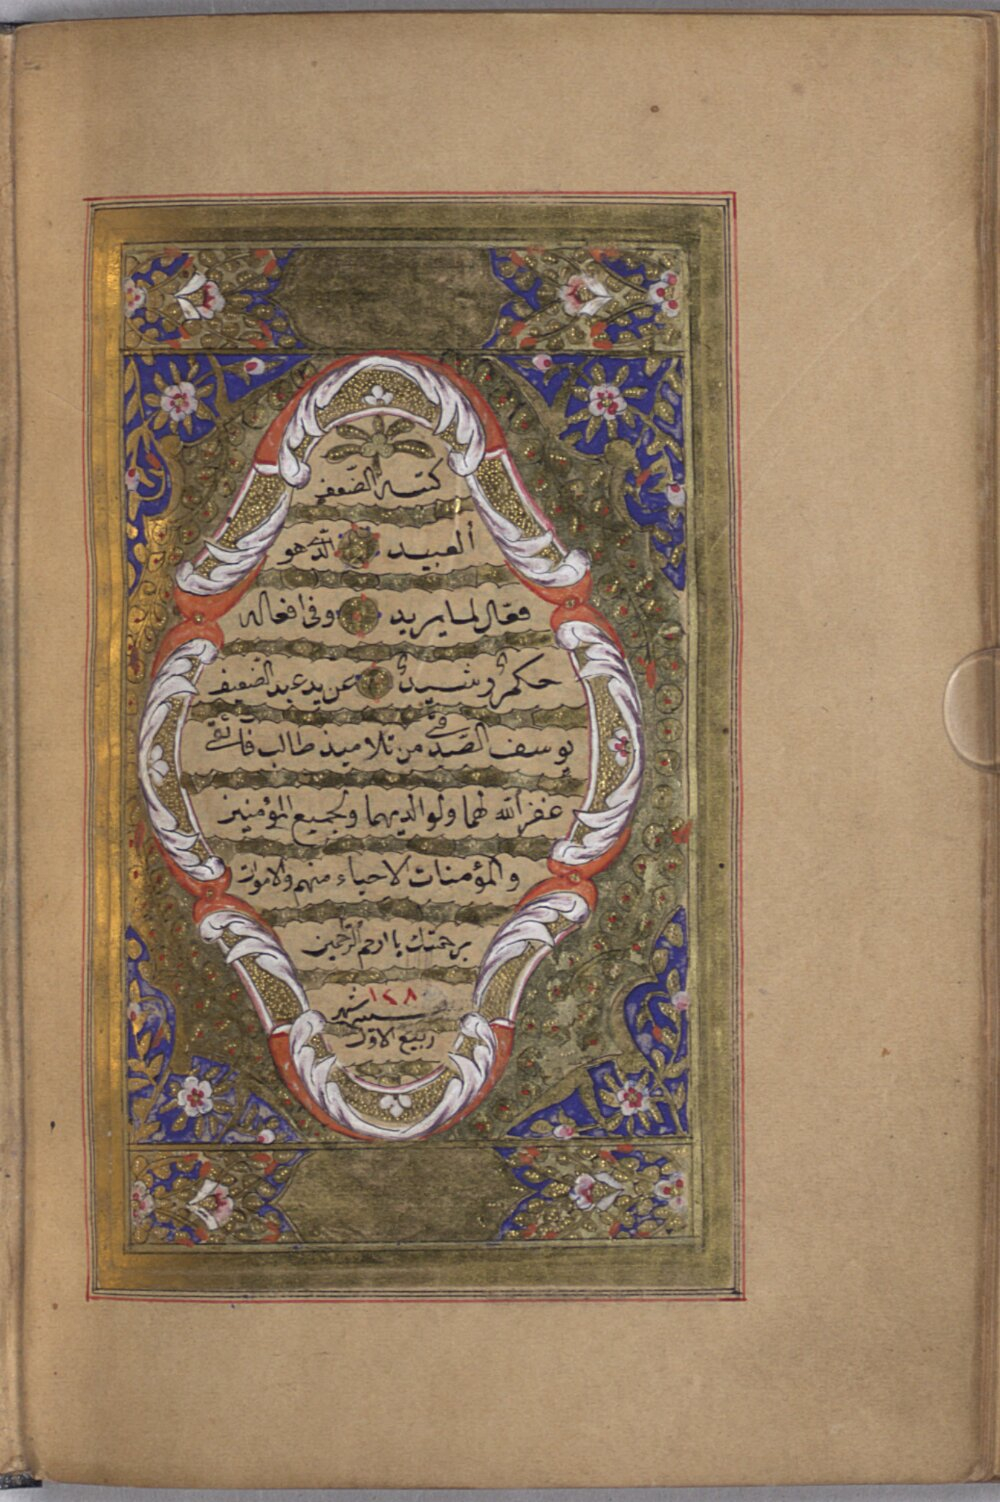 كتبه الضعف
العبيد الذى هو
فعّال لما يريد وفى افعاله
حكم رشيد عن يد عبد الضعيف
يوسف الصدقى من تلاميذ طالب فائقى
غفر الله لهما ولوالديهما ولجميع المؤمنين
والمؤمنات الاحياء منهم والاموات
برحمتك يا ارحم الراحمين
١٢٨
سنه شهر
ربيع الاول